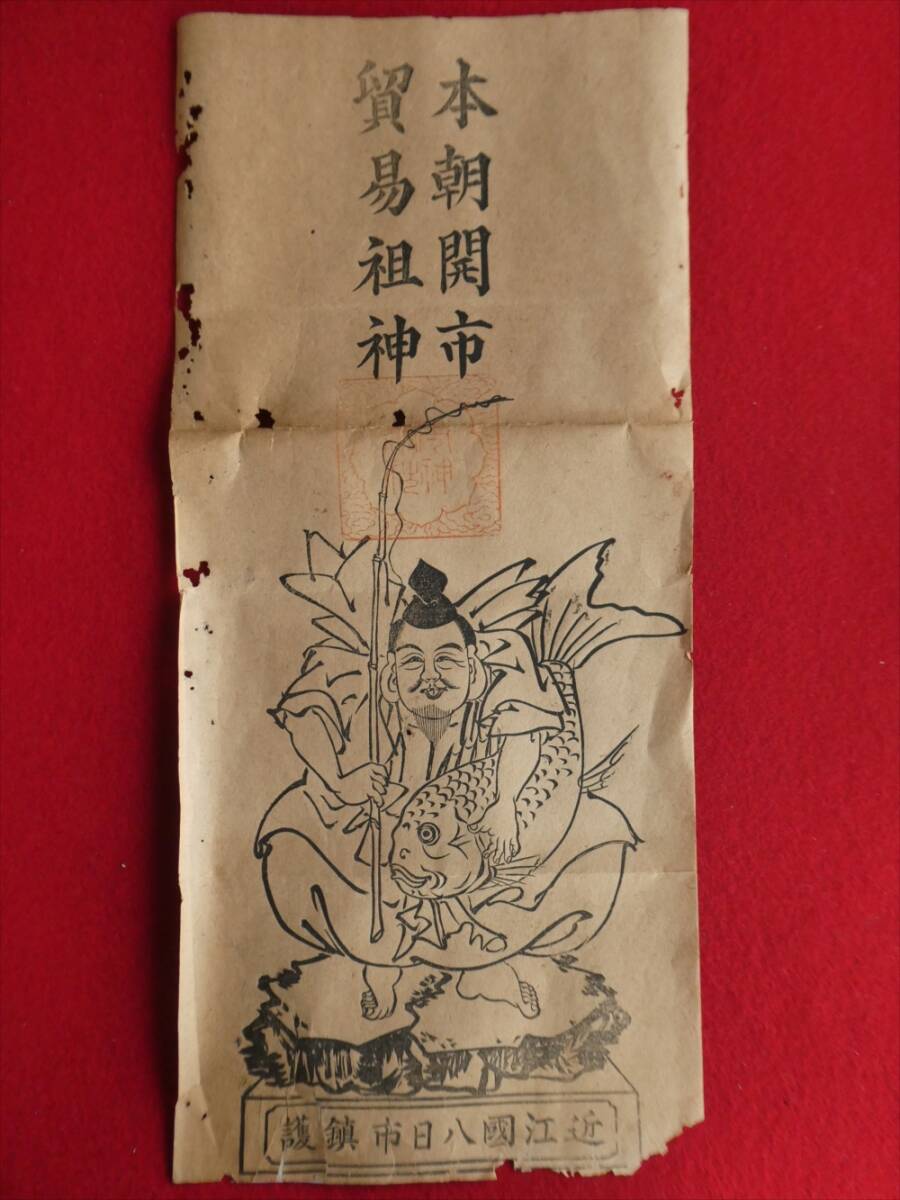 本朝開市
貿易祖神
近江國八日市鎮護